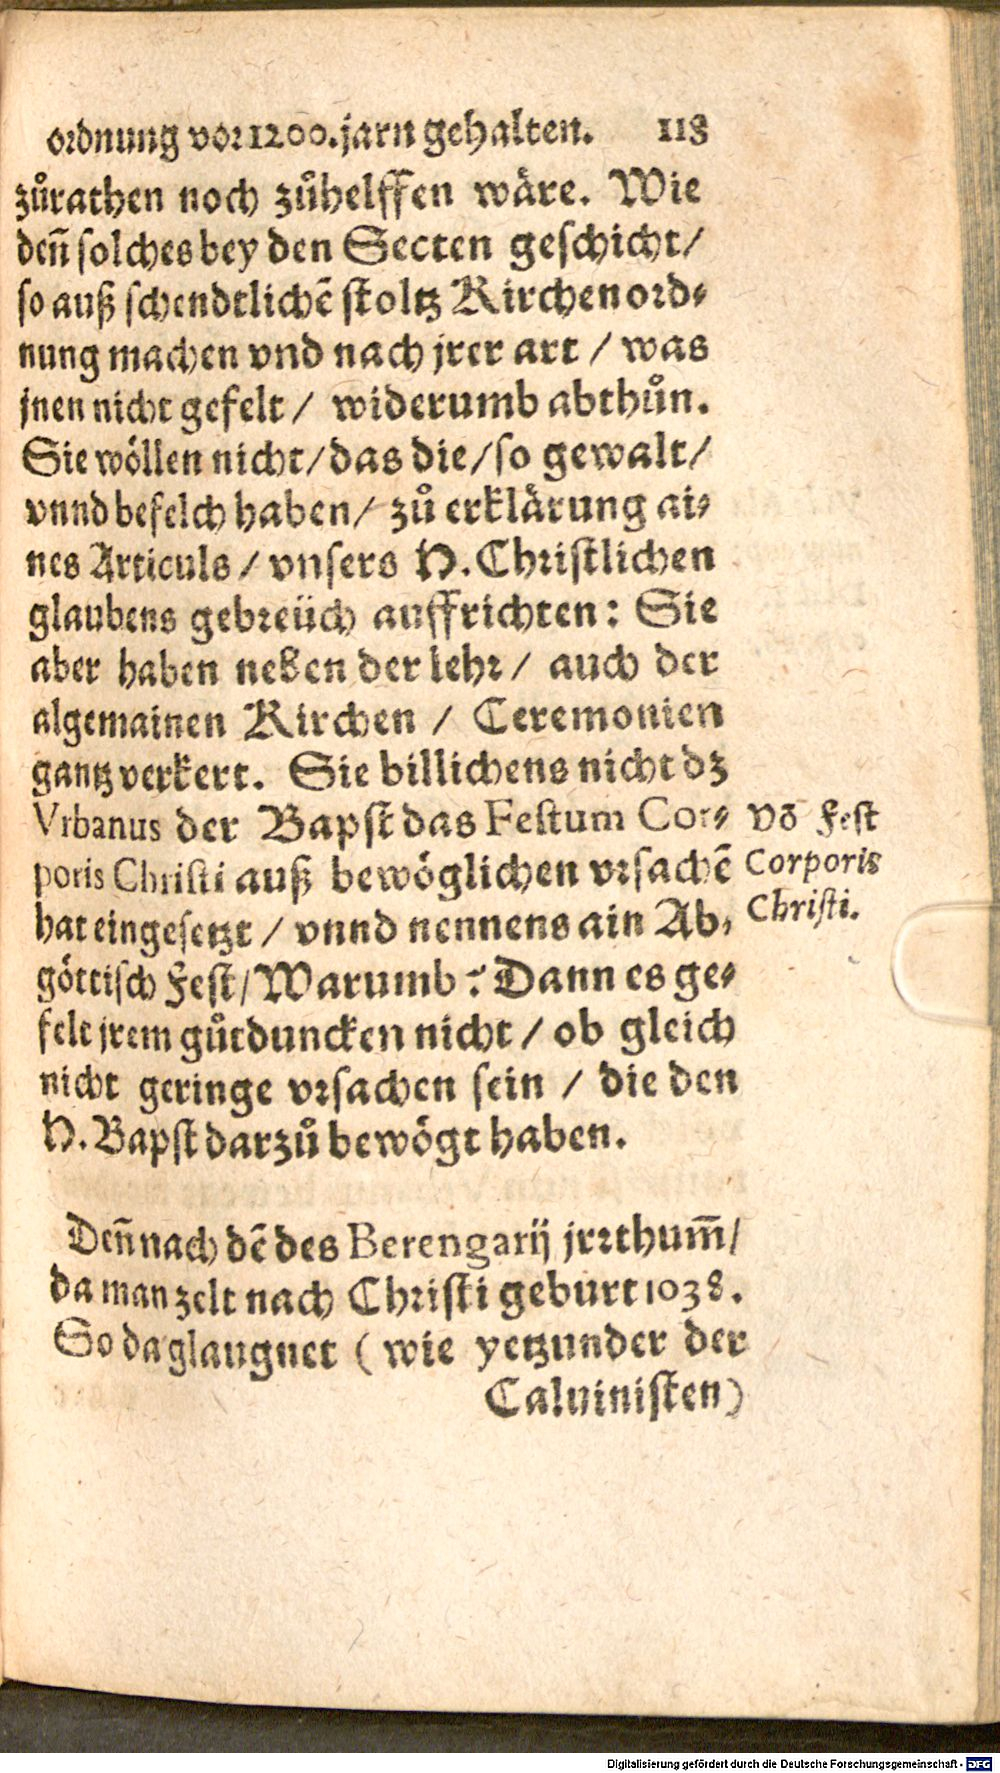 ordnung vor 1200. jarn gehalten. 118
zůrathen noch zůhelffen wäre. Wie
deñ solches bey den Secten geschicht/
so auß schendtlichẽ stoltz Kirchenord⸗
nung machen vnd nach jrer art / was
jnen nicht gefelt / widerumb abthůn.
Sie wöllen nicht / das die / so gewalt /
vnnd befelch haben / zů erklärung ai⸗
nes Articuls / vnsers H. Christlichen
glaubens gebreüch auffrichten: Sie
aber haben neben der lehr / auch der
algemainen Kirchen / Ceremonien
gantz verkert. Sie billichens nicht dz
Vrbanus der Bapst das Festum Cor⸗
poris Christi auß bewöglichen vrsachẽ
hat eingesetzt / vnnd nennens ain Ab⸗
göttisch Fest / Warumb? Dann es ge⸗
felt jrem gůtduncken nicht / ob gleich
nicht geringe vrsachen sein / die den
H. Bapst darzů bewögt haben.
Võ Fest
Corporis
Christi.
Deñ nach dẽ des Berengarij jrrthum̃/
da man zelt nach Christi geburt 1038.
So da glaugnet (wie yetzunder der
Caluinisten)
Digitalisierung gefördert durch die Deutsche Forschungsgemeinschaft - DFG